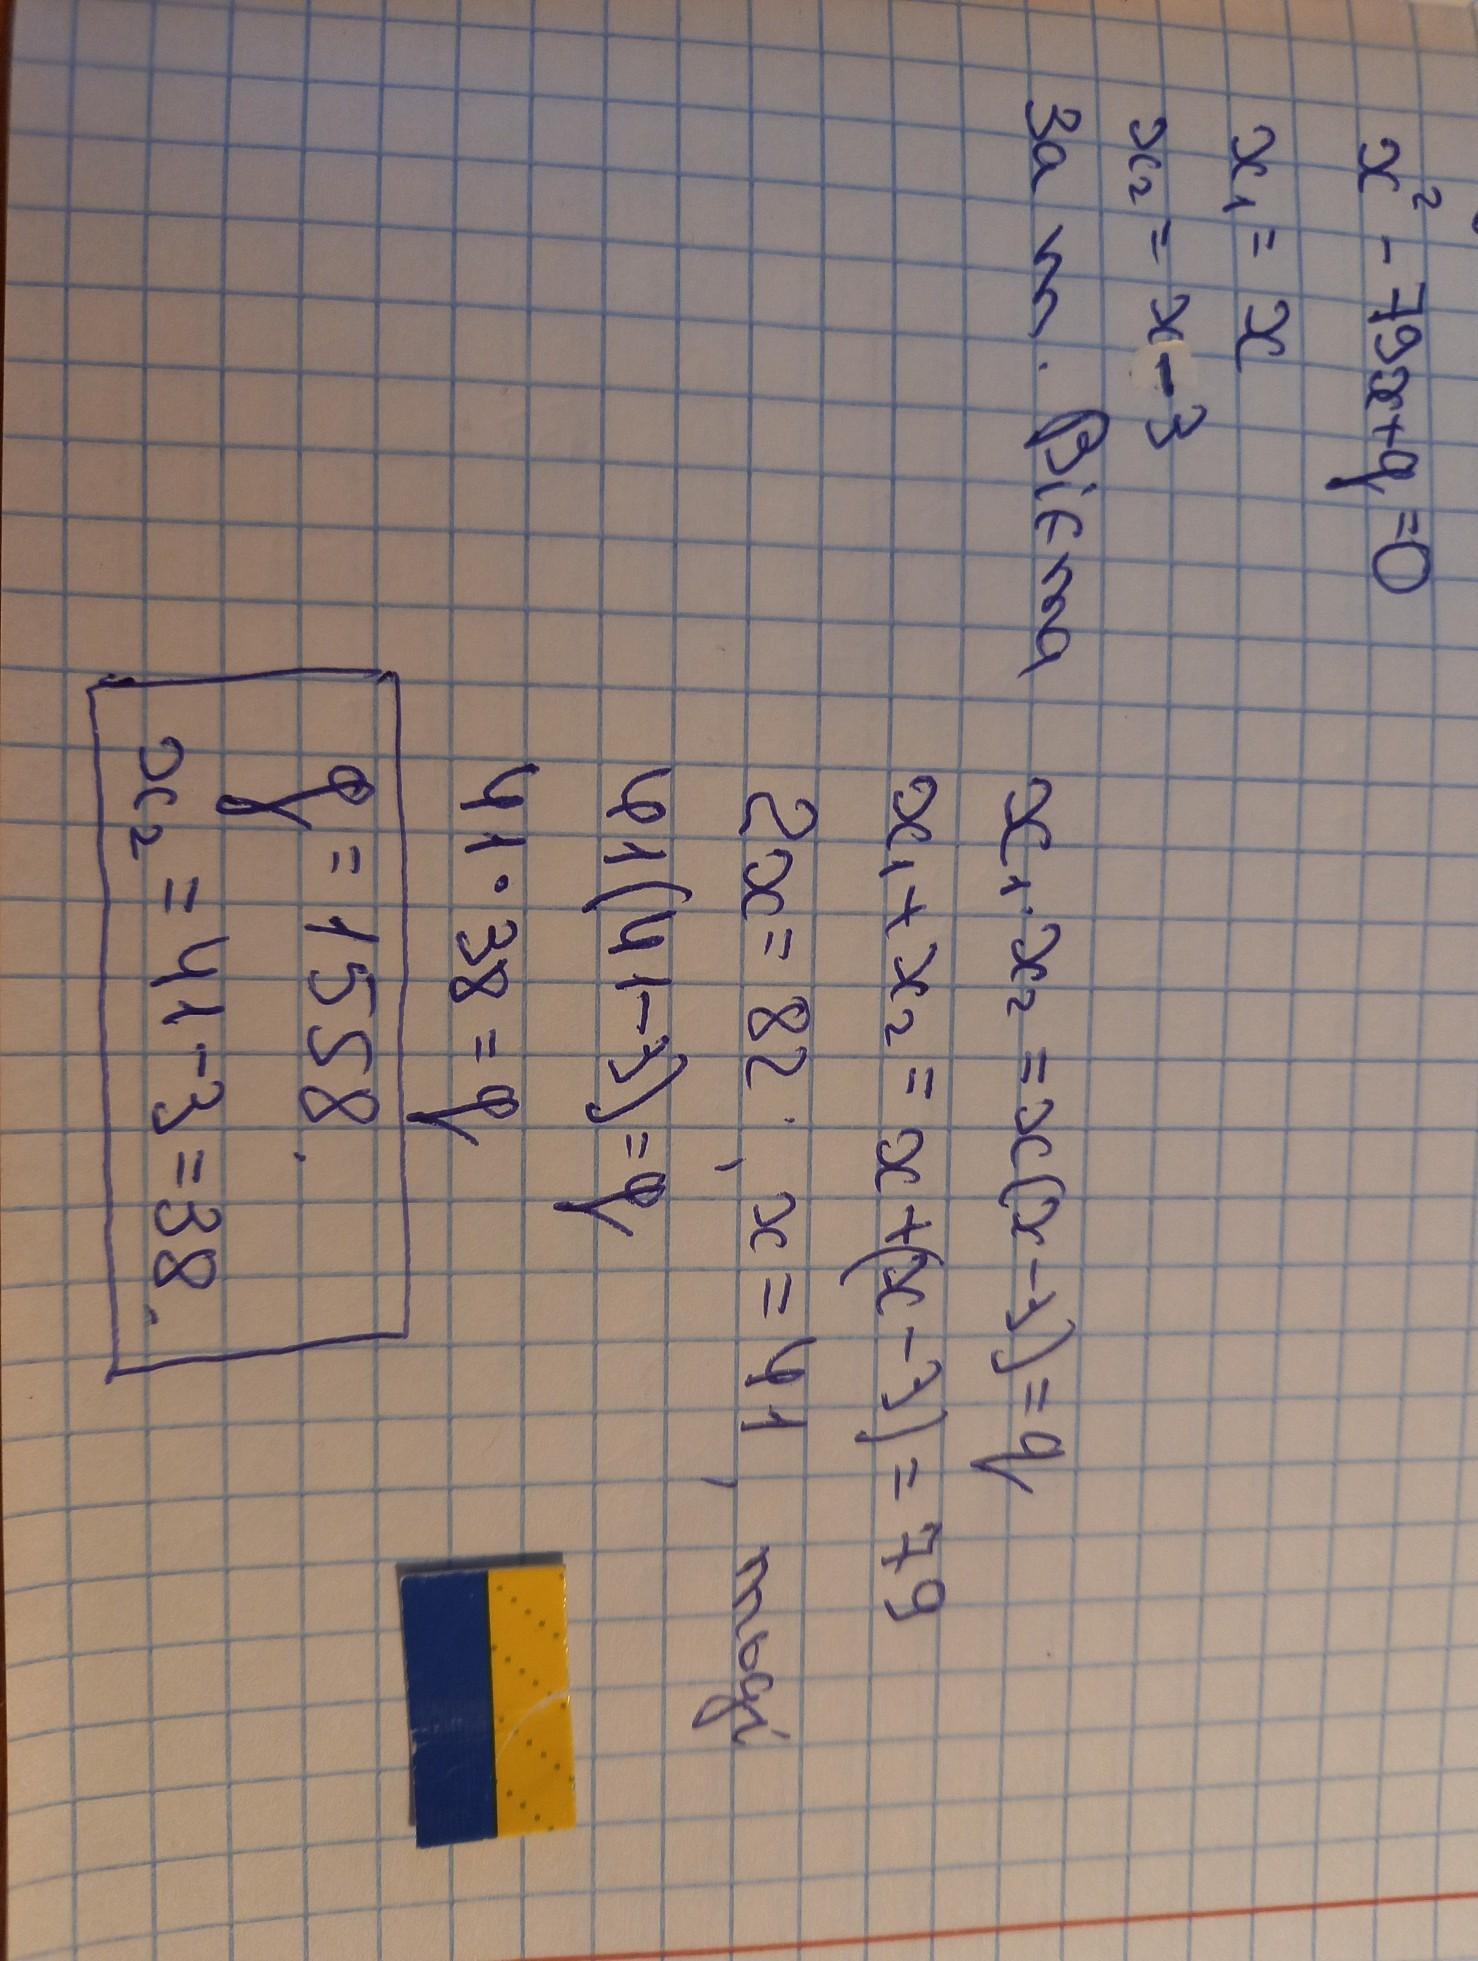 x² - 79x+q=0
x₁ = x
x₂ = x-3
За т. Вієта
x₁·x₂ = x(x-3)=q
x₁+x₂ = x+(x-3)=79
2x=82, x=41, тоді
41(41-3)=q
41·38=q
q=1558.
x₂ = 41-3=38.